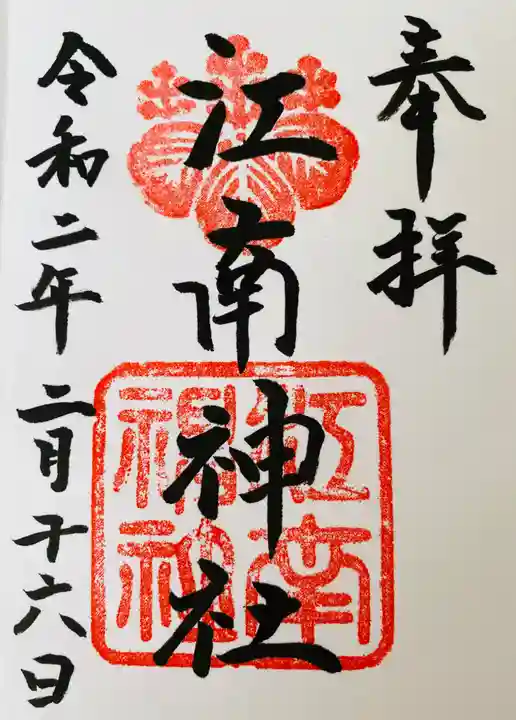 奉拝
江南神社
令和二年 二月十六日
江南神社